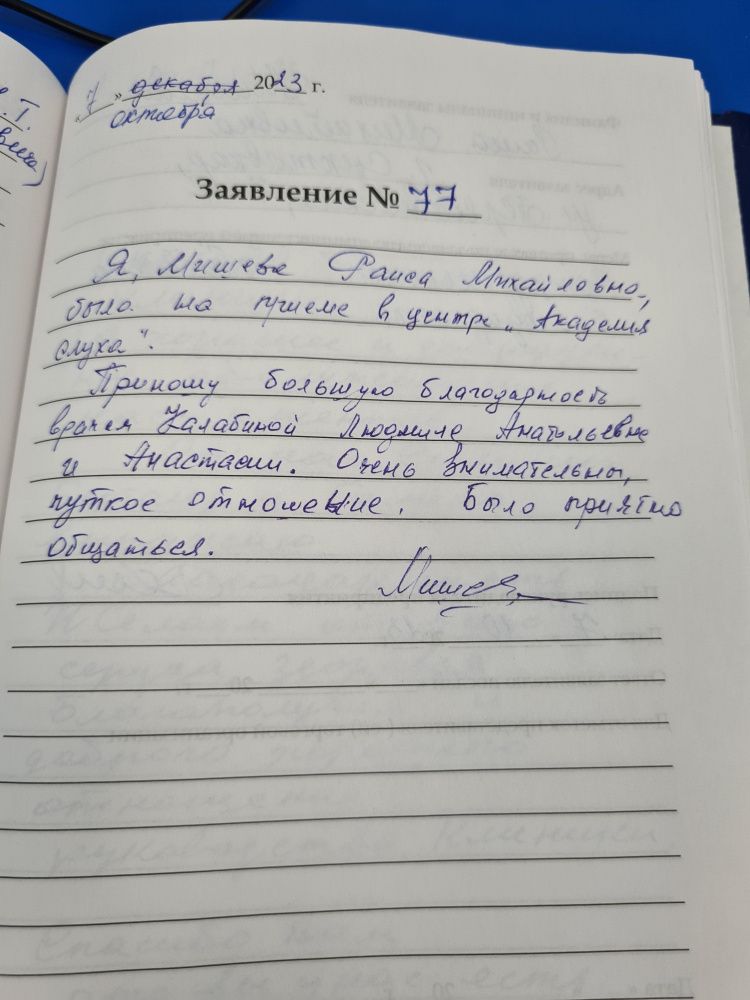 „7" декабря 2023 г.
октября
Заявление № 77
Я, Мишева Раиса Михайловна,
была на приеме в центре „Академия
слуха".
Приношу большую благодарность
врачам Калабиной Людмиле Анатольевне
и Анастасии. Очень внимательны,
чуткое отношение. Было приятно
общаться.